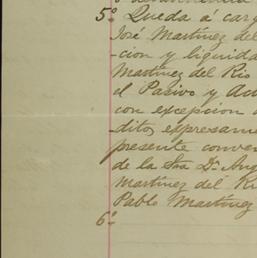 5º Queda á carg
José Martinez del
cion y liquida
Martinez del Rio
el Pasivo y Ac
con excepcion
ditos expresam
presente conven
de la Sra Dª Ang
Martinez del Ri
Pablo Martinez
6º